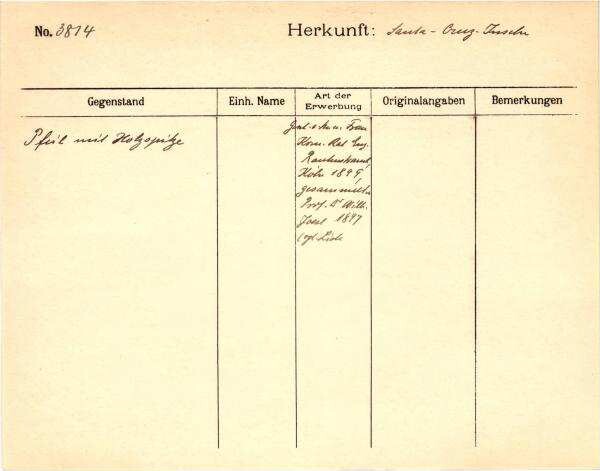 No. 3814
Herkunft: Santa-Cruz-Inseln
Gegenstand
Einh. Name
Art der Erwerbung
Originalangaben
Bemerkungen
Pfeil mit Holzspitze
Frau
Kom. Rat Eug.
Rautenstrauch,
Köln 1899,
gesammelt
Prof. Dr Wilh.
Joest 1897